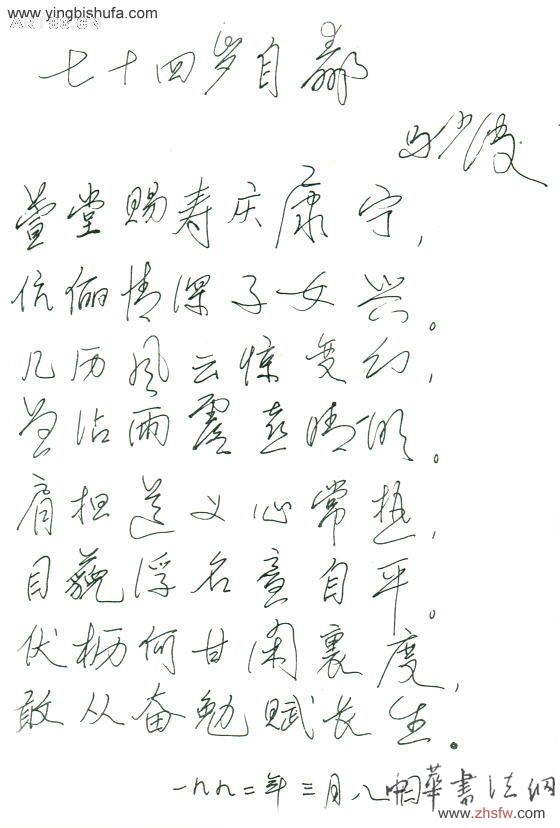 www.yingbishufa.com
七十四岁自
萱堂赐寿庆康宁，
伉俪情深子女兴。
几历风云惊变幻，
沾雨露喜晴明。
肩担道义心常热，
目藐浮名意自平。
伏枥何甘闲里度，
敢从奋勉赋长生。
一九九二年三月八
中华书法网
www.zhsfw.com